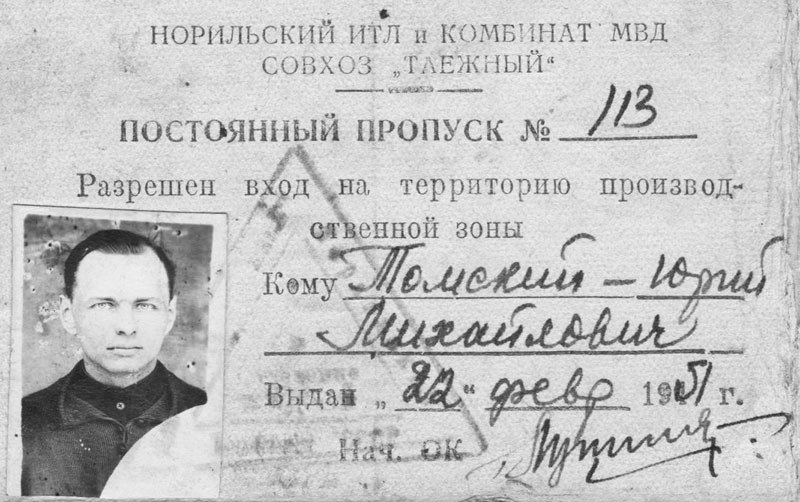 НОРИЛЬСКИЙ ИТЛ и КОМБИНАТ МВД
СОВХОЗ „ТАЕЖНЫЙ“
ПОСТОЯННЫЙ ПРОПУСК № 113
Разрешен вход на территорию производ-
ственной зоны
Кому Томский - Юрий
Михайлович
Выдан „22“ февр 1951 г.
Нач. ОК